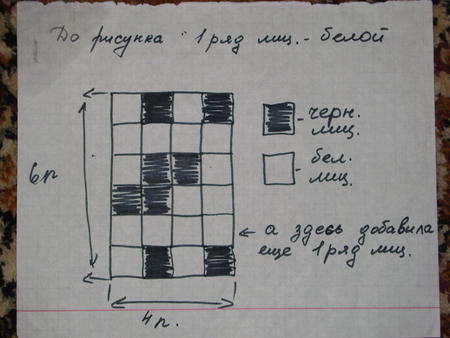 До рисунка 1 ряд лиц. - белой
- черн.
лиц.
- бел.
лиц.
6р
← а здесь добавила
еще 1 ряд лиц.
4р.